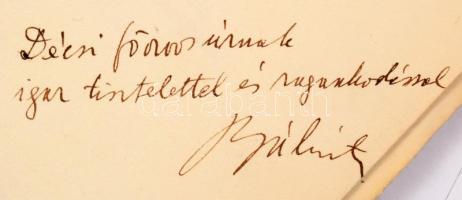 Décsi főorvos úrnak
igaz tisztelettel és ragaszkodással
Bálint